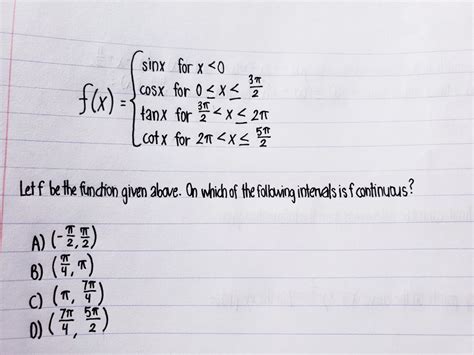 f(x) = { sinx for x < 0
cosx for 0 ≤ x ≤ 3π/2
tanx for 3π/2 < x ≤ 2π
cotx for 2π < x ≤ 5π/2
Let f be the function given above. On which of the following intervals is f continuous?
A) (-π/2, π/2)
B) (π/4, π)
C) (π, 7π/4)
D) (7π/4, 5π/2)